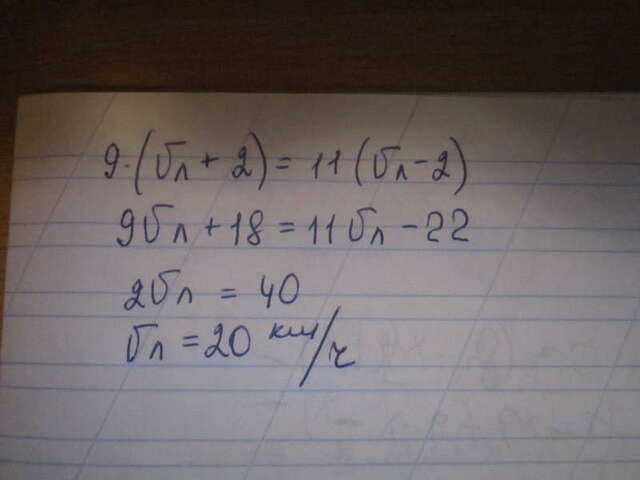 9·(Vл + 2) = 11(Vл - 2)
9Vл + 18 = 11Vл - 22
2Vл = 40
Vл = 20 км/ч